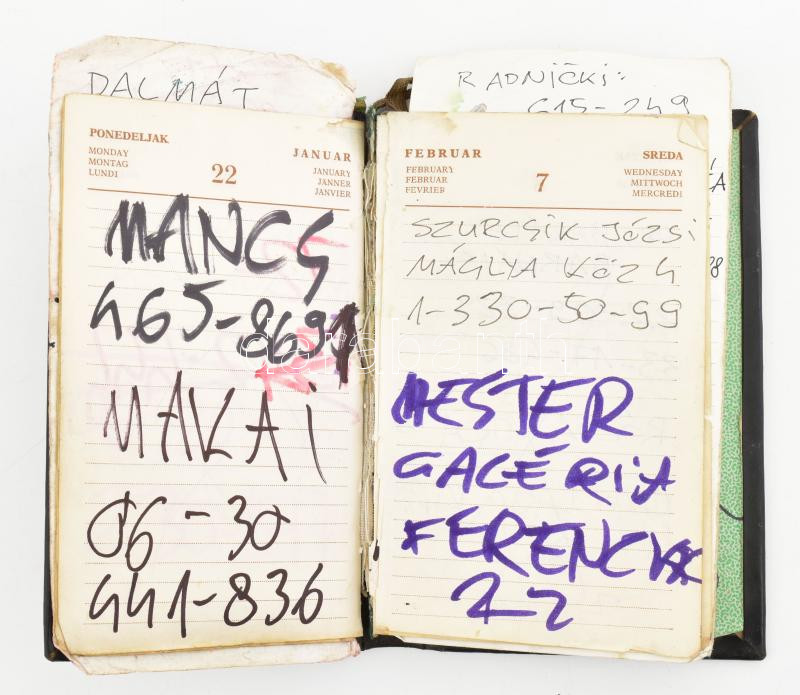 DALMÁT
PONEDELJAK
MONDAY
MONTAG
LUNDI
22
JANUAR
JANUARY
JÄNNER
JANVIER
MANCS
465-8691
MAKAI
06-30
441-836
RADNIČKI:
615-249
FEBRUAR
FEBRUARY
FEBRUAR
FEVRIER
7
SREDA
WEDNESDAY
MITTWOCH
MERCREDI
SZURCSIK JÓZSI
MÁGLYA KÖZ 4
1-330-50-99
MESTER
GALÉRIA
FERENC
22
darabanth